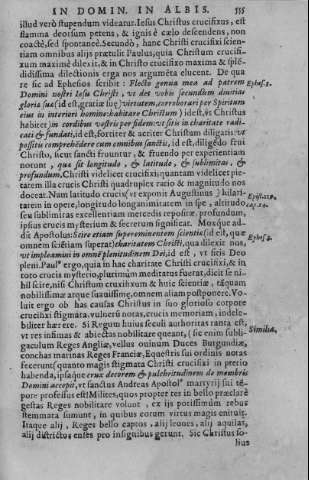 IN DOMIN. IN ALBIS. 555
illud verò stupendum videatur. Iesus Christus crucifixus, est
flamma deorsum petens, & ignis è cælo descendens, non
coactè, sed spontaneè. Secundò, hanc Christi crucifixi scien-
tiam omnibus alijs prætulit Paulus, quia Christum crucifi-
xum maximè dilexit, & in Christo crucifixo maxima & splē-
didissima dilectionis erga nos argumēta elucent. De qua
re sic ad Ephesios scribit: Flecto genua mea ad patrem Ephes. 3.
Domini nostri Iesu Christi, vt det vobis secundum diuitias
gloria sua (id est, gratiæ suæ) virtutem, corroborari per Spiritum
eius in interiori homine: habitare Christum) idest, vt Christus
habitet) in cordibus vestris per fidem: vt sitis in charitate radi-
cati & fundati, id est, fortiter & acriter Christum diligatis: vt
possitis comprehēdere cum omnibus sanctis, id est, diligēdo frui
Christo, sicut sancti fruuntur, & fruendo per experientiam
norunt, qua sit longitudo, & latitudo, & sublimitas, &
profundum, Christi videlicet crucifixi: quantam videlicet pie-
tatem illa crucis Christi quadruplex ratio & magnitudo nos
doceat. Nam latitudo crucis (vt exponit Augustinus) hilari- Epist. 120.
tarem in opere, longitudo longanimitatem in spe, altitudo cap. 26.
seu sublimitas excellentiam mercedis repositæ, profundum,
ipsius crucis mysterium & secretum significat. Moxque ad-
dit Apostolus: Scire etiam supereminentem scientiæ (id est, quæ Ephes. 3.
omnem sciētiam superat) charitatem Christi, qua dilexit nos,
vt impleamini in omnē plenitudinem Dei, id est, vt sitis Deo
pleni. Paul⁹ ergo, quia in hac charitate Christi crucifixi, & in
toto crucis mysterio, plurimùm meditatus fuerat, dicit se ni-
hil scire, nisi Christum crucifixum & huic scientiæ, tāquam
nobilissimæ atque suauissimæ, omnem aliam postponere. Vo-
luit ergo ob has causas Christus in suo glorioso corpore
crucifixi stigmata, vulnerū notas, crucis memoriam, indele-
biliter hærere. Si Regum huius sæculi authoritas tanta est, Similia.
vt res infimas & abiectas nobilitare queant, (sic enim subli-
gaculum Reges Angliæ, vellus ouinum Duces Burgundiæ,
conchas marinas Reges Franciæ, Equestris sui ordinis notas
fecerunt) quanto magis stigmata Christi crucifixi in pretio
habenda, ipsaque crux decorem & pulchritudinem de membris
Domini accepit, vt sanctus Andreas Apostol⁹ martyrij sui tē-
pore professus est? Milites, quos propter res in bello præclarè
gestas Reges nobilitare volunt, ex ijs potissimùm rebus
stemmata sumunt, in quibus eorum virtus magis enituit.
Itaque alij, Reges bello captos, alij leones, alij aquilas,
alij districtos enses pro insignibus gerunt. Sic Christus so-
lius